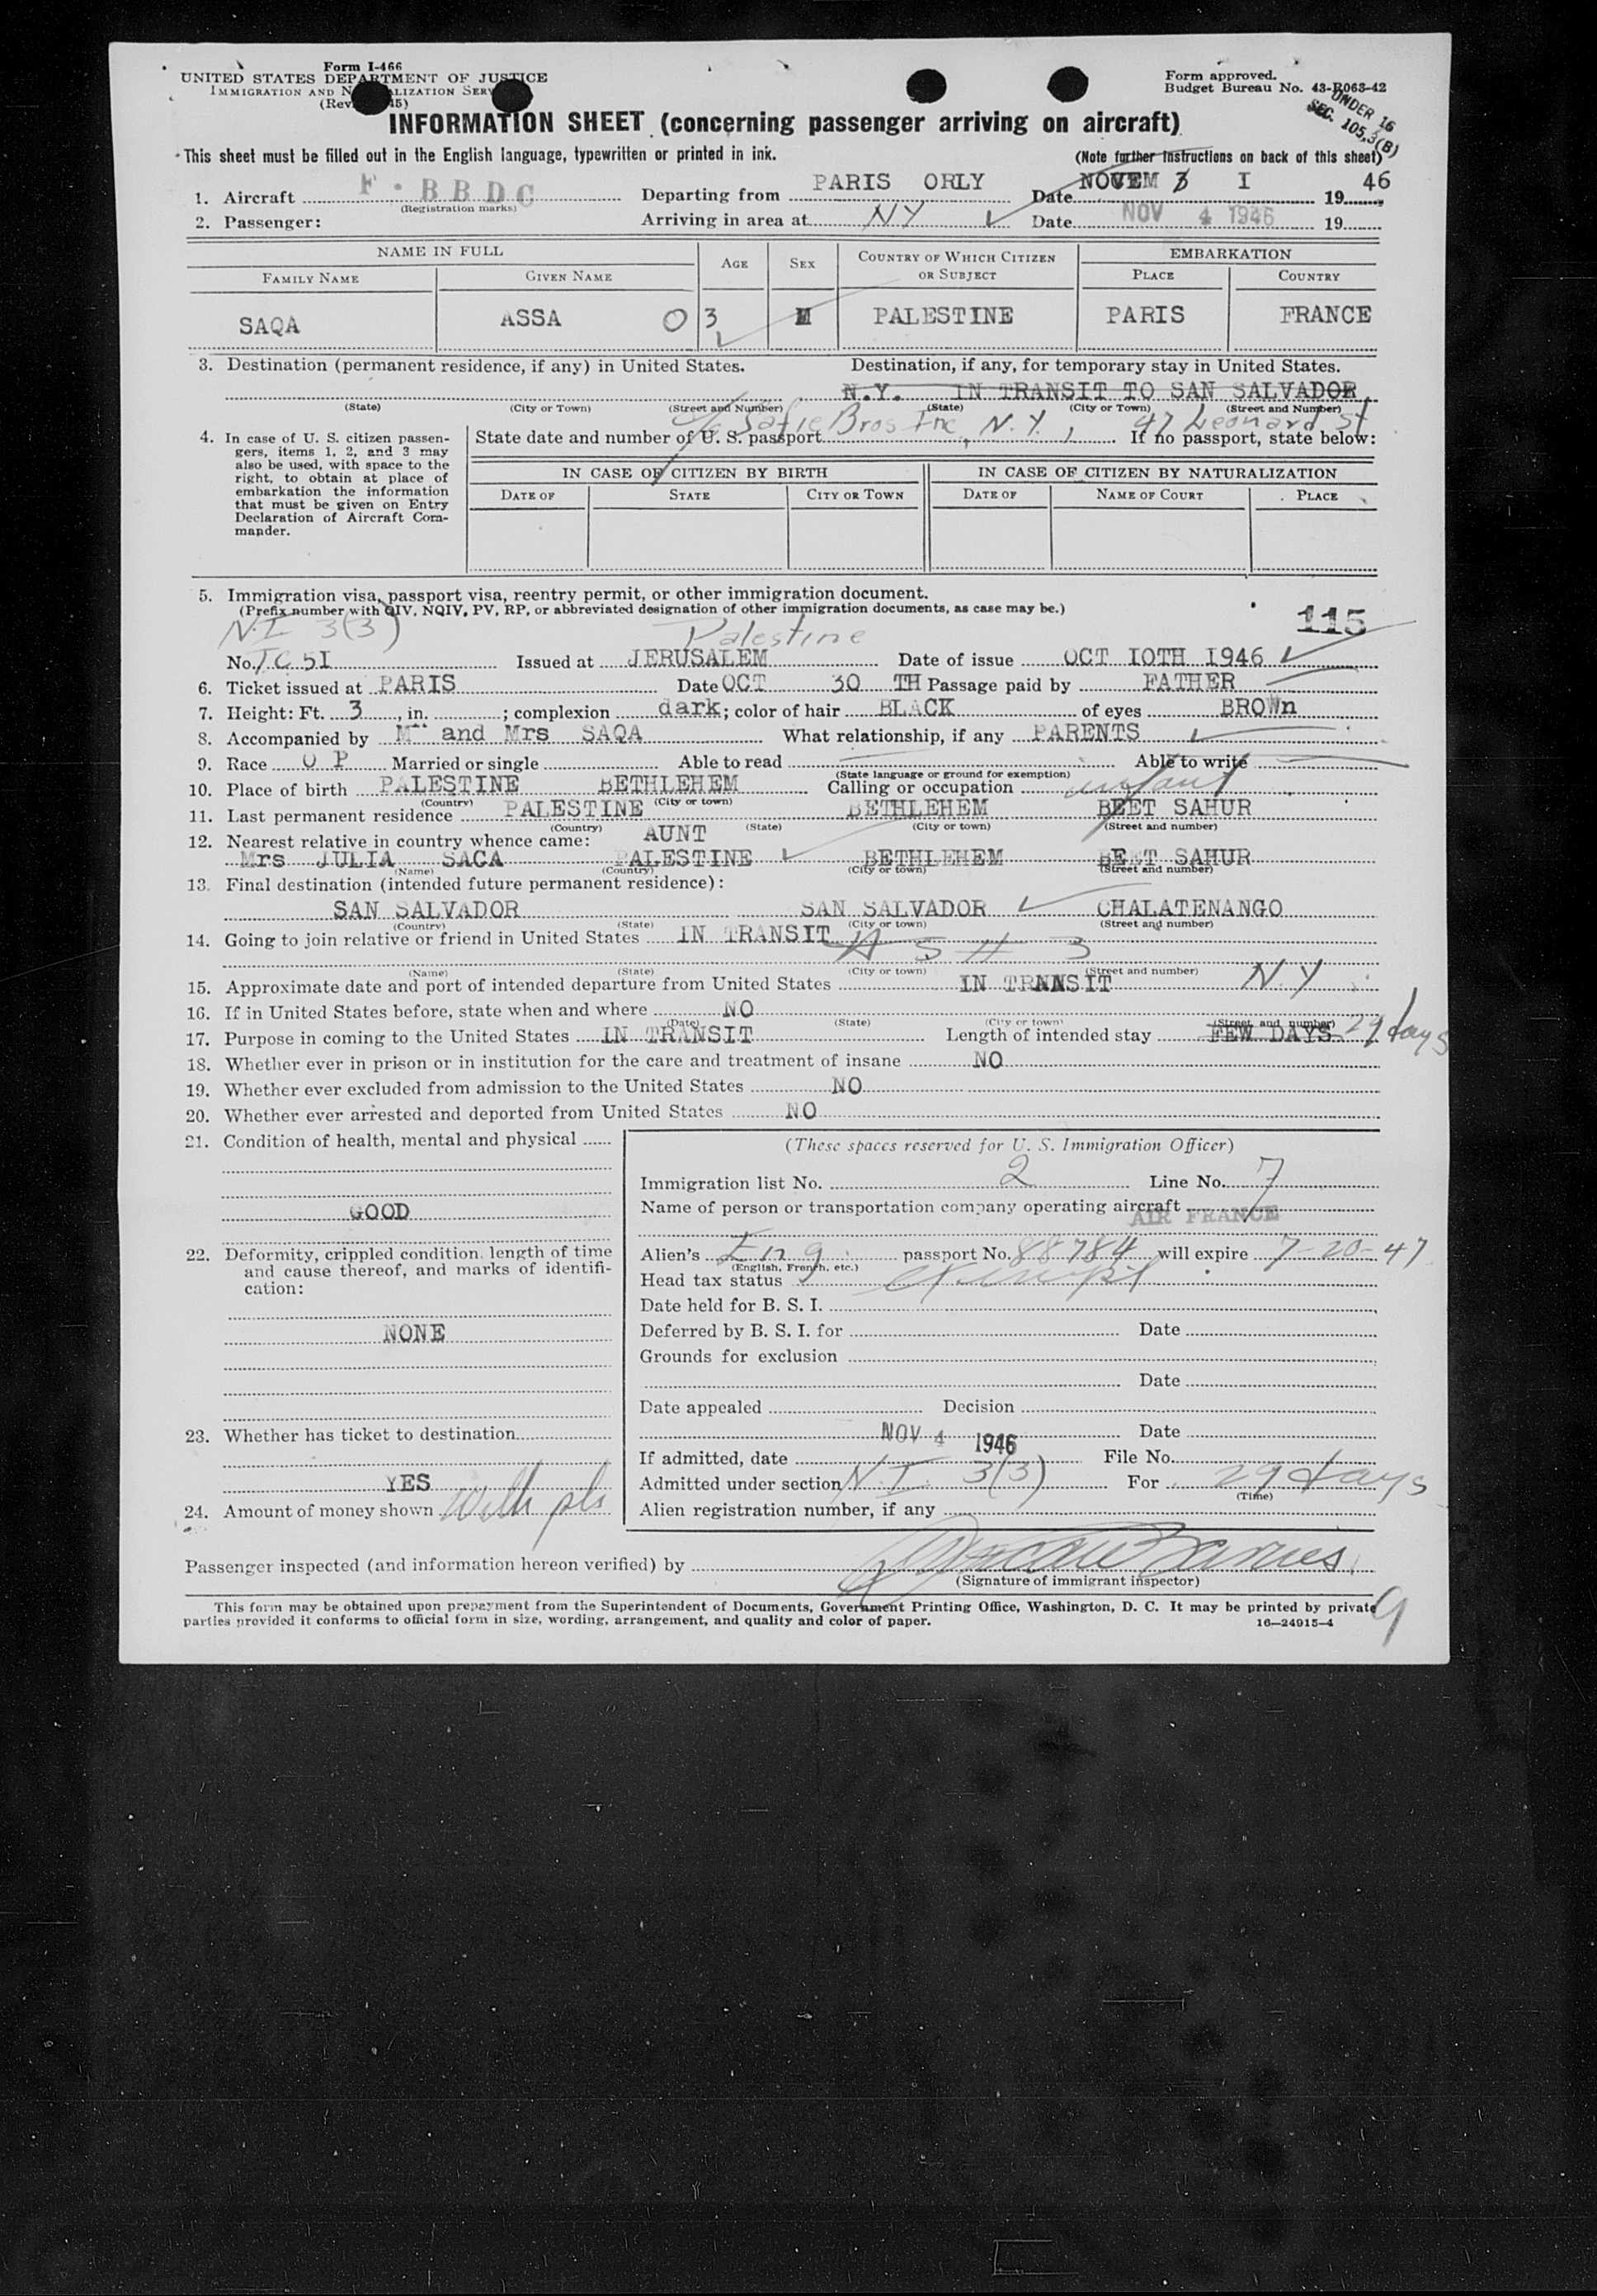 Form I-466
UNITED STATES DEPARTMENT OF JUSTICE
IMMIGRATION AND N ALIZATION SERV
(Rev. 45)
Form approved.
Budget Bureau No. 43-R063-42
UNDER 16
SEC. 105.3(B)
INFORMATION SHEET (concerning passenger arriving on aircraft)
This sheet must be filled out in the English language, typewritten or printed in ink. (Note further instructions on back of this sheet)
1. Aircraft F-BBDC Departing from PARIS ORLY Date NOVEM 3 I 1946
(Registration marks)
2. Passenger: Arriving in area at NY Date NOV 4 1946 19
NAME IN FULL AGE SEX COUNTRY OF WHICH CITIZEN OR SUBJECT EMBARKATION
FAMILY NAME GIVEN NAME PLACE COUNTRY
SAQA ASSA O 3 M PALESTINE PARIS FRANCE
3. Destination (permanent residence, if any) in United States. Destination, if any, for temporary stay in United States.
N.Y. IN TRANSIT TO SAN SALVADOR
(State) (City or Town) (Street and Number) (State) (City or Town) (Street and Number)
c/o Safie Bros Inc, N.Y., 47 Leonard St
4. In case of U. S. citizen passengers, items 1, 2, and 3 may also be used, with space to the right, to obtain at place of embarkation the information that must be given on Entry Declaration of Aircraft Commander.
State date and number of U. S. passport If no passport, state below:
IN CASE OF CITIZEN BY BIRTH IN CASE OF CITIZEN BY NATURALIZATION
DATE OF STATE CITY OR TOWN DATE OF NAME OF COURT PLACE
5. Immigration visa, passport visa, reentry permit, or other immigration document.
(Prefix number with QIV, NQIV, PV, RP, or abbreviated designation of other immigration documents, as case may be.)
115
N.I 3(3) Palestine
No. TC 5I Issued at JERUSALEM Date of issue OCT IOTH I946
6. Ticket issued at PARIS Date OCT 30 TH Passage paid by FATHER
7. Height: Ft. 3, in. ; complexion dark; color of hair BLACK of eyes BROWn
8. Accompanied by Mr and Mrs SAQA What relationship, if any PARENTS
9. Race O P Married or single Able to read Able to write
(State language or ground for exemption)
10. Place of birth PALESTINE BETHLEHEM Calling or occupation infant
(Country) (City or town)
11. Last permanent residence PALESTINE BETHLEHEM BEET SAHUR
(Country) (State) (City or town) (Street and number)
12. Nearest relative in country whence came: AUNT
Mrs JULIA SACA PALESTINE BETHLEHEM BEET SAHUR
(Name) (Country) (City or town) (Street and number)
13. Final destination (intended future permanent residence):
SAN SALVADOR SAN SALVADOR CHALATENANGO
(Country) (State) (City or town) (Street and number)
14. Going to join relative or friend in United States IN TRANSIT
A S # 3
(Name) (State) (City or town) (Street and number)
15. Approximate date and port of intended departure from United States IN TRANSIT N.Y
16. If in United States before, state when and where NO
(Date) (State) (City or town) (Street and number)
17. Purpose in coming to the United States IN TRANSIT Length of intended stay FEW DAYS 29 days
18. Whether ever in prison or in institution for the care and treatment of insane NO
19. Whether ever excluded from admission to the United States NO
20. Whether ever arrested and deported from United States NO
21. Condition of health, mental and physical
GOOD
22. Deformity, crippled condition, length of time and cause thereof, and marks of identification:
NONE
23. Whether has ticket to destination
YES
24. Amount of money shown With pls
(These spaces reserved for U. S. Immigration Officer)
Immigration list No. 2 Line No. 7
Name of person or transportation company operating aircraft
AIR FRANCE
Alien's Eng passport No. 88784 will expire 7-20-47
(English, French, etc.)
Head tax status exempt
Date held for B. S. I.
Deferred by B. S. I. for Date
Grounds for exclusion
Date
Date appealed Decision
Date
NOV 4 1946
If admitted, date File No.
Admitted under section N.I. 3(3) For 29 days
(Time)
Alien registration number, if any
Passenger inspected (and information hereon verified) by
(Signature of immigrant inspector)
This form may be obtained upon prepayment from the Superintendent of Documents, Government Printing Office, Washington, D. C. It may be printed by private
parties provided it conforms to official form in size, wording, arrangement, and quality and color of paper. 16—24915-4
9